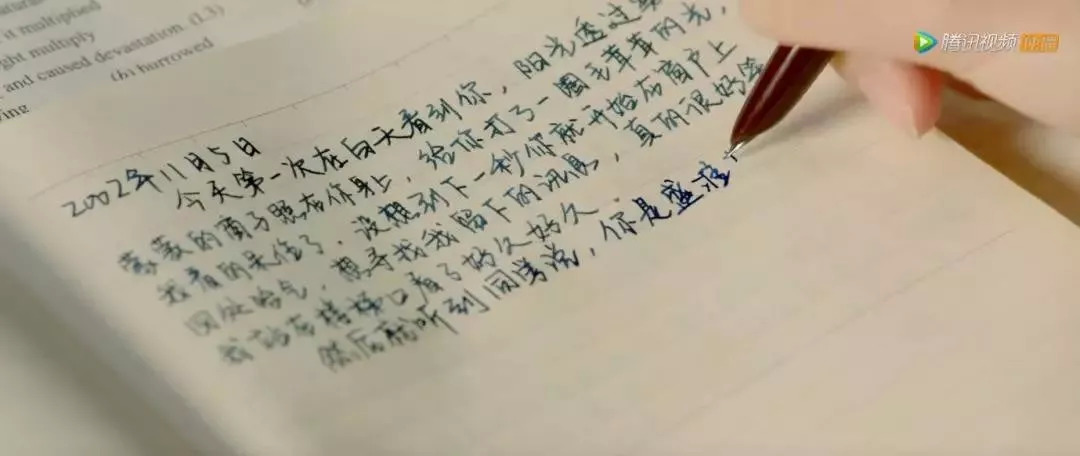 it multiplied
ght multiply
and caused devastation. (L3)
(b) burrowed
腾讯视频
2002年11月5日
今天第一次在白天看到你,阳光透过
蒙蒙的窗子照在你身上,给你打了一圈毛茸茸的光,
我看的呆住了,没想到下一秒你就开始在窗户上
四处哈气,想寻找我留下的讯息,真的很好
我站在楼梯口看了好久好久.
然后就听到同学说,你是盛淮